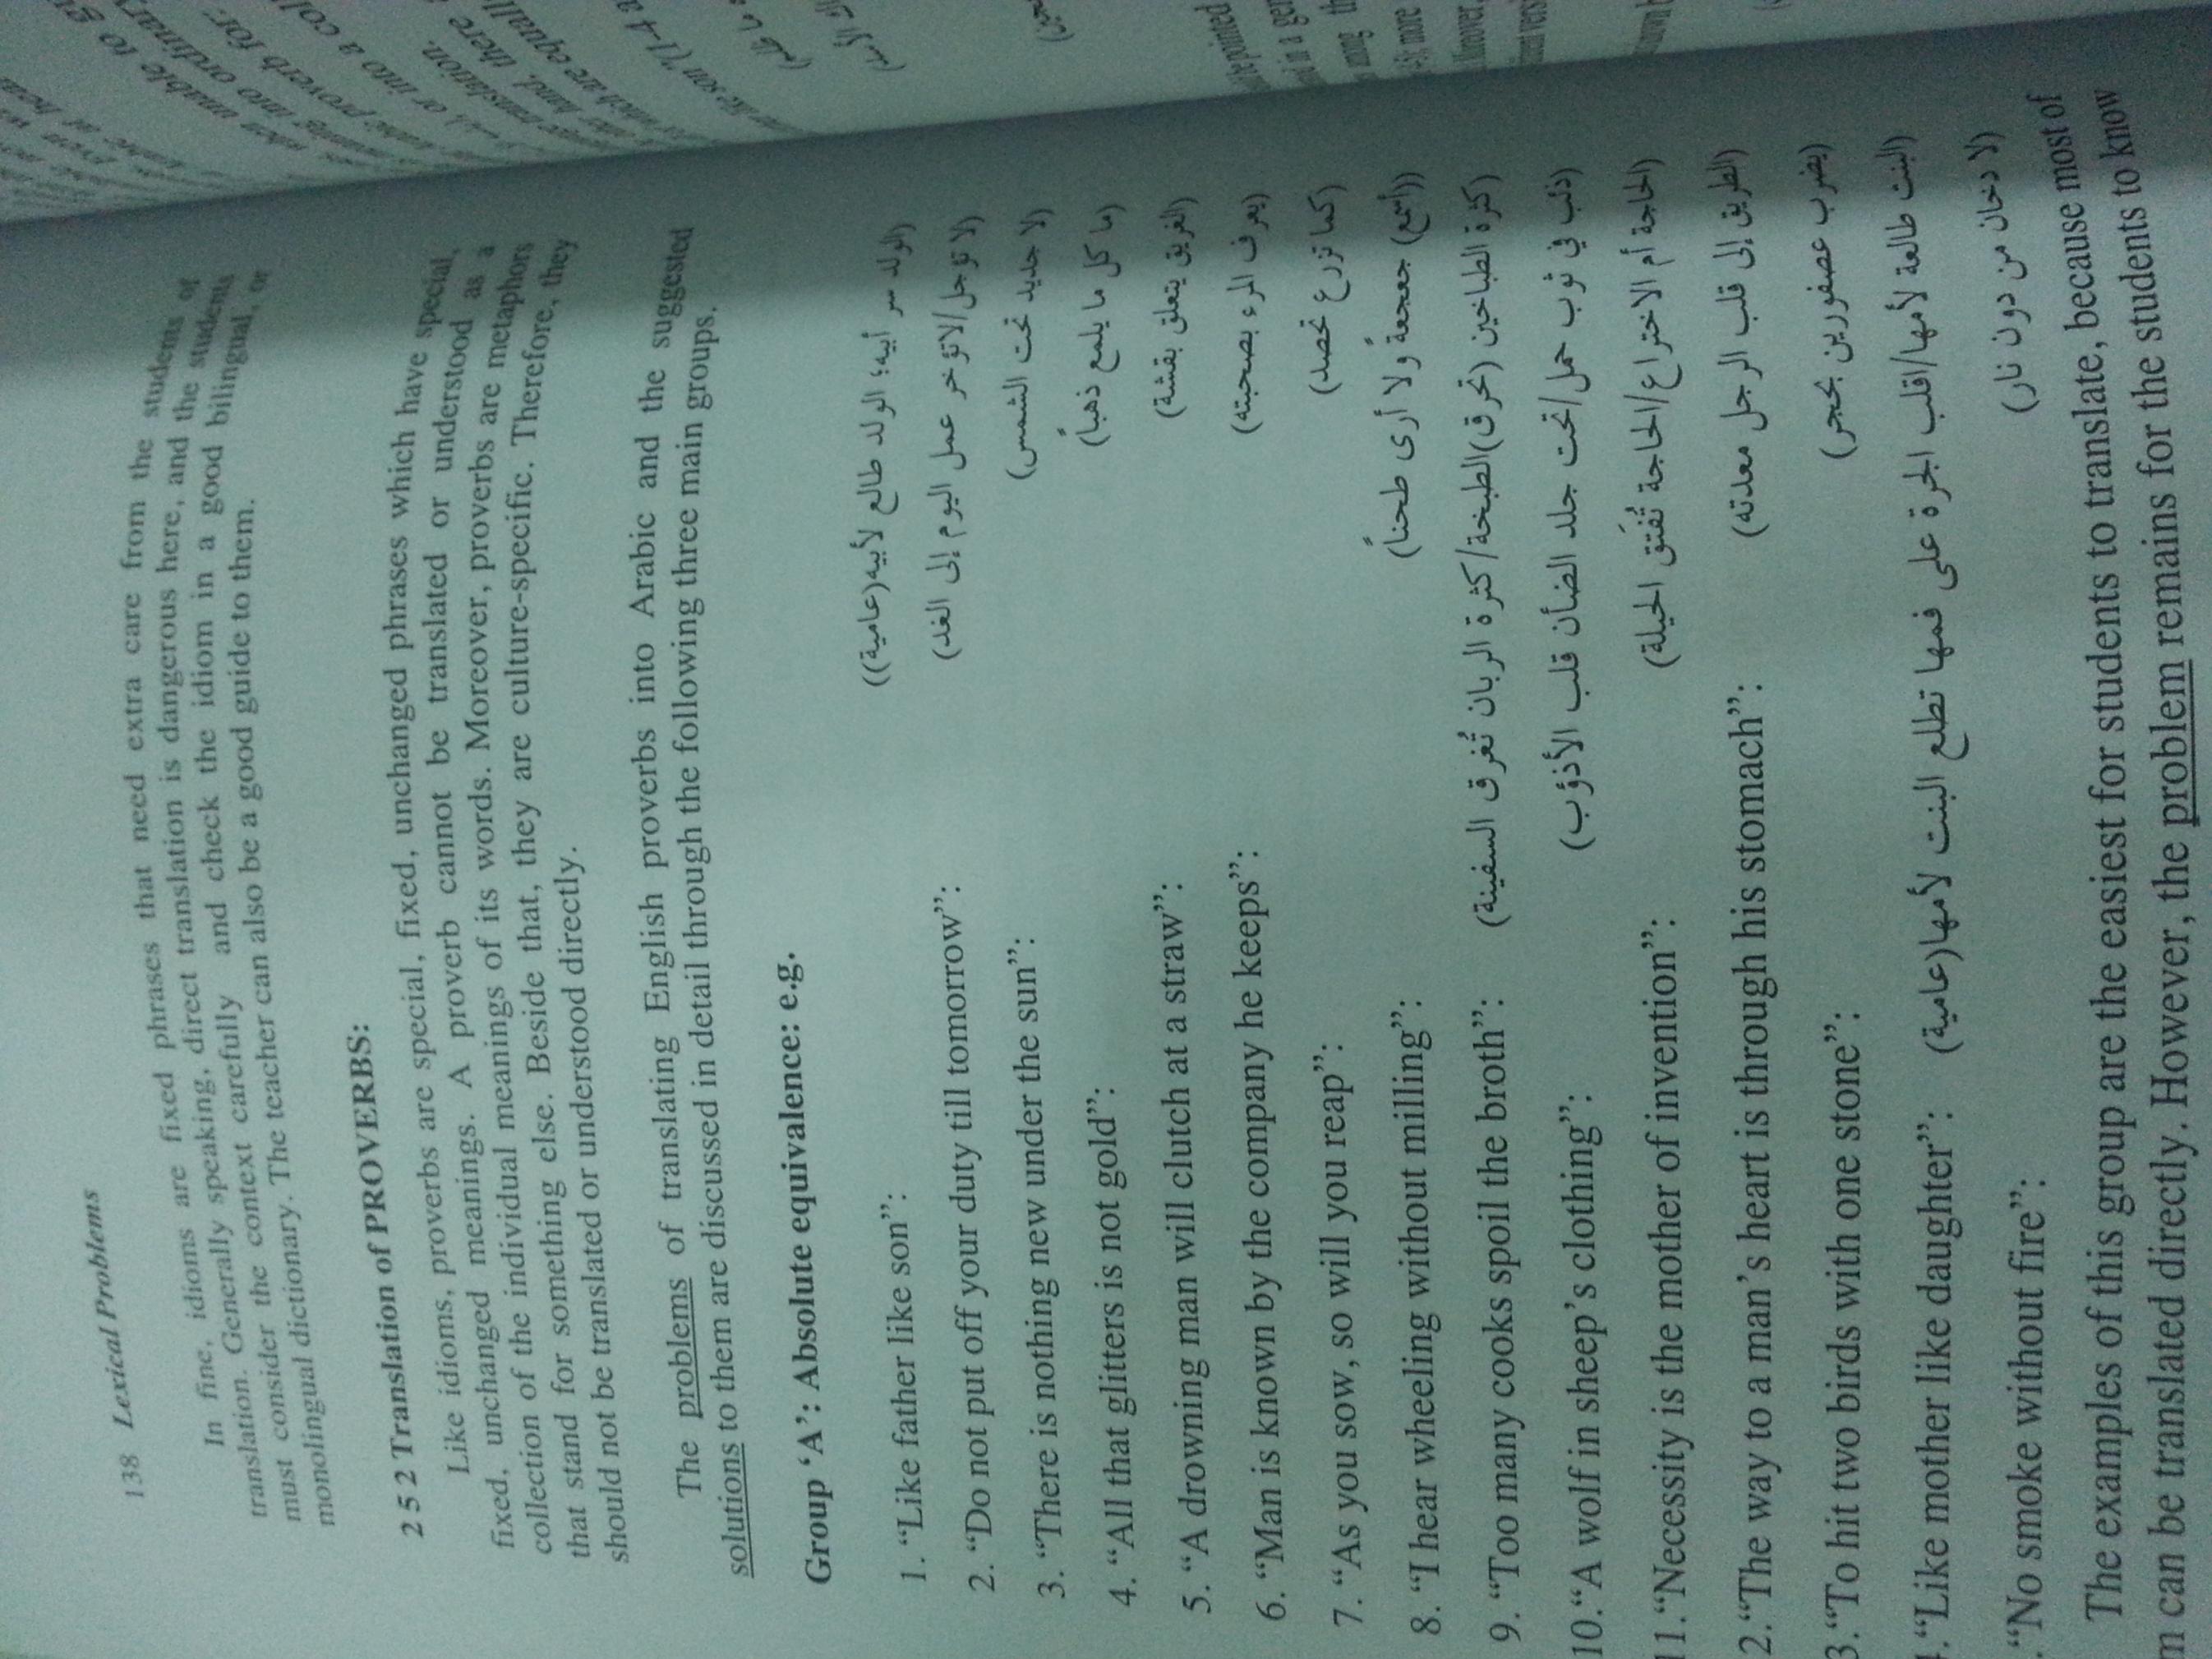 138 Lexical Problems
In fine, idioms are fixed phrases that need extra care from the students of
translation. Generally speaking, direct translation is dangerous here, and the students
must consider the context carefully and check the idiom in a good bilingual, or
monolingual dictionary. The teacher can also be a good guide to them.
2 5 2 Translation of PROVERBS:
Like idioms, proverbs are special, fixed, unchanged phrases which have special,
fixed, unchanged meanings. A proverb cannot be translated or understood as a
collection of the individual meanings of its words. Moreover, proverbs are metaphors
that stand for something else. Beside that, they are culture-specific. Therefore, they
should not be translated or understood directly.
The problems of translating English proverbs into Arabic and the suggested
solutions to them are discussed in detail through the following three main groups.
Group ‘A’: Absolute equivalence: e.g.
1. “Like father like son”: (الولد سر أبيه؛ الولد طالع لأبيه(عامية))
2. “Do not put off your duty till tomorrow”: (لا تؤجل/لاتؤخر عمل اليوم إلى الغد)
3. “There is nothing new under the sun”: (لا جديد تحت الشمس)
4. “All that glitters is not gold”: (ما كل ما يلمع ذهباً)
5. “A drowning man will clutch at a straw”: (الغريق يتعلق بقشة)
6. “Man is known by the company he keeps”: (يعرف المرء بصحبته)
7. “As you sow, so will you reap”: (كما تزرع تحصد)
8. “I hear wheeling without milling”: ((أسمع) جعجعةً ولا أرى طحناً)
9. “Too many cooks spoil the broth”: (كثرة الطباخين (تحرق)الطبخة/كثرة الربان تُغرق السفينة)
10.“A wolf in sheep’s clothing”: (ذئب في ثوب حمل/تحت جلد الضأن قلب الأذؤب)
1.“Necessity is the mother of invention”: (الحاجة أم الاختراع/الحاجة تُفتق الحيلة)
2.“The way to a man’s heart is through his stomach”: (الطريق إلى قلب الرجل معدته)
3.“To hit two birds with one stone”: (يضرب عصفورين بحجر)
.“Like mother like daughter”: (البنت طالعة لأمها/اقلب الجرة على فمها تطلع البنت لأمها(عامية)
.“No smoke without fire”: (لا دخان من دون نار)
The examples of this group are the easiest for students to translate, because most of
m can be translated directly. However, the problem remains for the students to know